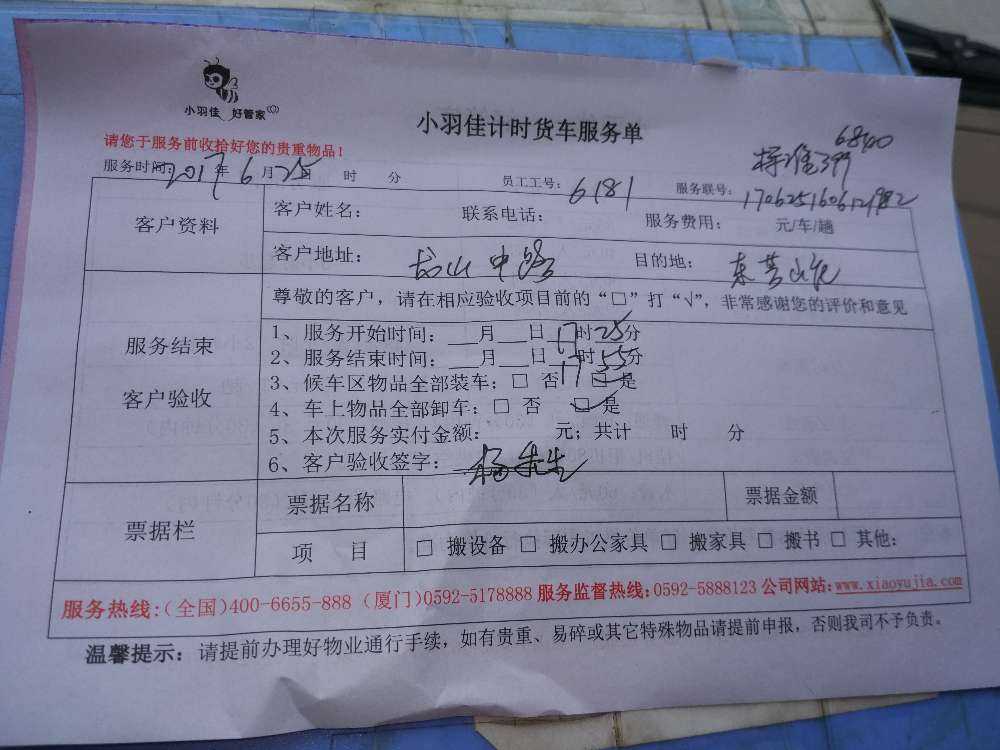 小羽佳 好管家
小羽佳计时货车服务单
请您于服务前收拾好您的贵重物品！
6840
服务时间：2017年 6月 25日 时 分 员工工号：6181 服务联号：
客户资料 客户姓名： 联系电话： 服务费用： 元/车/趟
客户地址： 中路 目的地：
尊敬的客户，请在相应验收项目前的“□”打“√”，非常感谢您的评价和意见
服务结束
客户验收
1、服务开始时间：__月__日 17时25分
2、服务结束时间：__月__日 17时55分
3、候车区物品全部装车：□ 否 □ 是
4、车上物品全部卸车：□ 否 □ 是
5、本次服务实付金额： 元；共计 时 分
6、客户验收签字：杨先生
票据栏 票据名称 票据金额
项 目 □ 搬设备 □ 搬办公家具 □ 搬家具 □ 搬书 □ 其他：
服务热线：（全国）400-6655-888（厦门）0592-5178888 服务监督热线：0592-5888123 公司网站：www.xiaoyujia.com
温馨提示：请提前办理好物业通行手续，如有贵重、易碎或其它特殊物品请提前申报，否则我司不予负责。